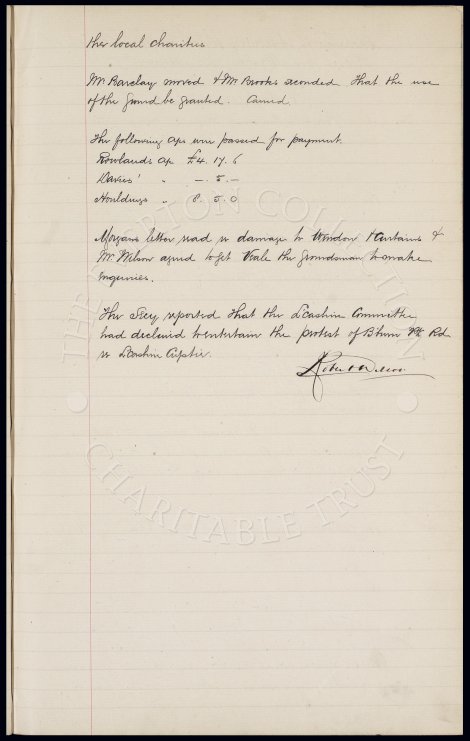 the local charities
Mr. Barclay moved & Mr Brooks seconded that the use
of the ground be granted. Carried.
The following a/cs were passed for payment.
Rowlands a/c £4. 17. 6
Davies' " – . 5 . –
Houldings " 8. 5. 0
Morgans letter read re damage to Window & Curtains &
Mr. Wilson agreed to get Vale the Groundsman to make
enquiries.
The Secy reported that the L'cashire Committee
had declined to entertain the protest of B'ham Rd
re L'cashire Cuptie.
Robert Wilson
THE EVERTON COLLECTION
CHARITABLE TRUST